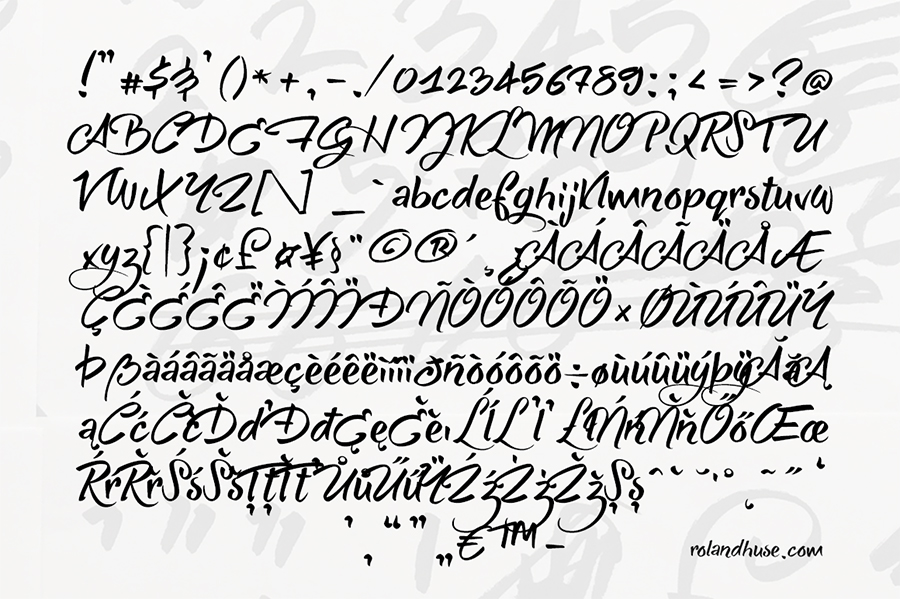 !"#$&'()*+,-./0123456789:;<=>?@
ABCDEFGHIJKLMNOPQRSTU
VWXYZ[\]_`abcdefghijklmnopqrstuvw
xyz{|}¡¢£¤¥§¨©®´¸¿ÀÁÂÃÄÅÆ
ÇÈÉÊËÌÍÎÏÐÑÒÓÔÕÖ×ØÙÚÛÜÝ
Þßàáâãäåæçèéêëìíîïðñòóôõö÷øùúûüýþÿĂăĄ
ąĆćČčĎďĐđĘęĚěıĹĺĽľŁłŃńŇňŐőŒœ
ŔŕŘřŚśŠšŢţŤťŮůŰűŸŹźŻżŽžȘșˆˇ˘˙˚˛˜˝‘
’“”
‚„€™−
rolandhuse.com